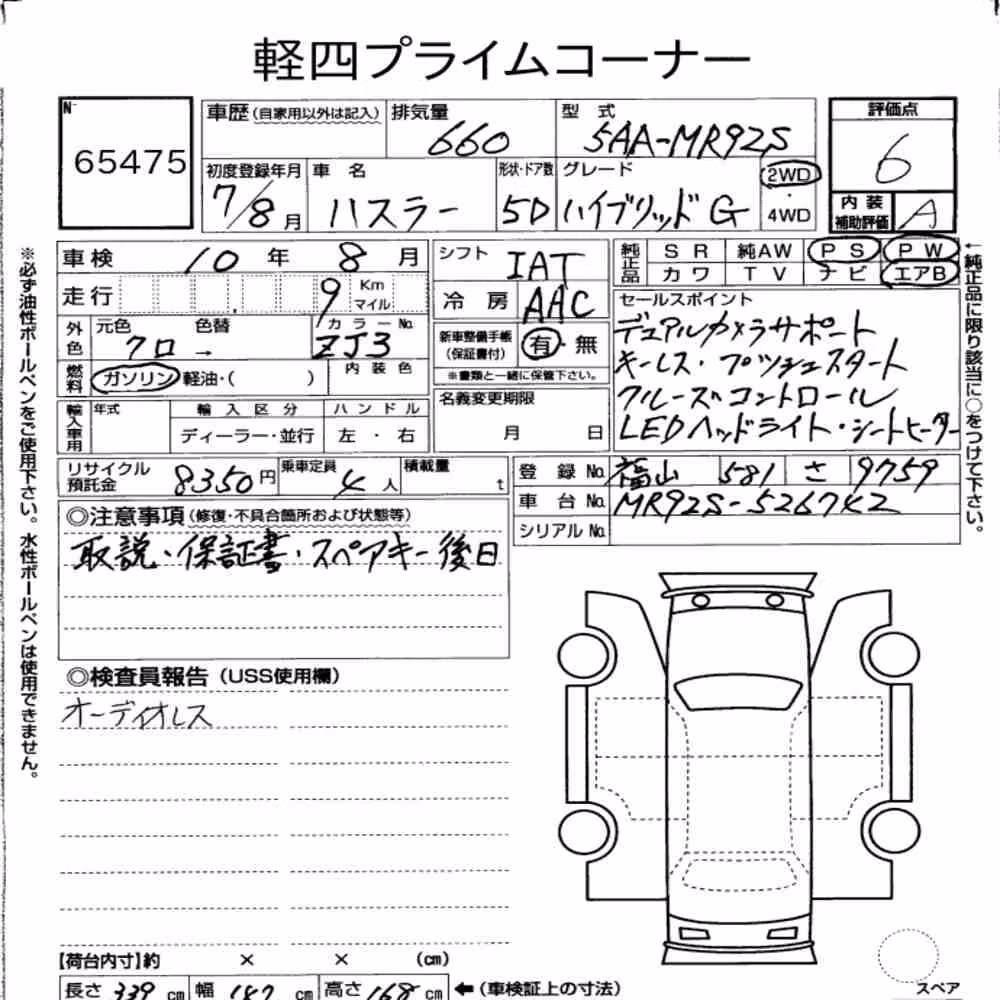 軽四プライムコーナー
N-
65475
車歴 (自家用以外は記入)
排気量
660
型式
5AA-MR92S
評価点
6
初度登録年月
7/8月
車名
ハスラー
形状・ドア数
5D
グレード
ハイブリッド G
2WD
・
4WD
内装
補助評価
A
車検
10年 8月
シフト
IAT
純正品
SR 純AW PS PW
カワ TV ナビ エアB
走行
9
Km
マイル
冷房
AAC
セールスポイント
デュアルカメラサポート
キーレス・プッシュスタート
クルーズコントロール
LEDヘッドライト・シートヒーター
外色
元色 色替
クロ →
カラーNo.
ZJ3
新車整備手帳
(保証書付)
有・無
※書類と一緒に保管下さい。
燃料
ガソリン 軽油・( )
内装色
名義変更期限
月 日
輸入車用
年式
輸入区分
ディーラー・並行
ハンドル
左・右
リサイクル
預託金
8350円
乗車定員
4人
積載量
t
登録No.
福山 581 さ 9759
車台No.
MR92S-526742
シリアルNo.
◎注意事項 (修復・不具合箇所および状態等)
取説・保証書・スペアキー後日
◎検査員報告 (USS使用欄)
オーディオレス
【荷台内寸】約 × × (cm)
長さ 339 cm 幅 147 cm 高さ 168 cm ←(車検証上の寸法)
スペア
※必ず油性ボールペンをご使用下さい。水性ボールペンは使用できません。
←純正品に限り該当に○をつけて下さい。